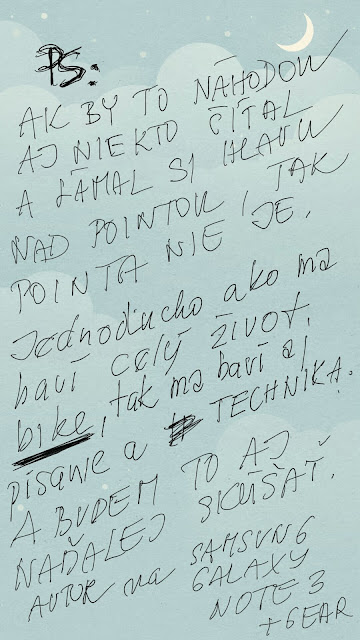 PS:
AK BY TO NÁHODOU
AJ NIEKTO ČÍTAL
A LÁMAL SI HLAVU
NAD POINTOU, TAK
POINTA NIE JE.
Jednoducho ako ma
baví celý život,
bike, tak ma baví aj
písanie a TECHNIKA.
A BUDEM TO AJ
NAĎALEJ SKÚŠAŤ.
AUTOR na SAMSUNG
GALAXY
NOTE 3
+GEAR